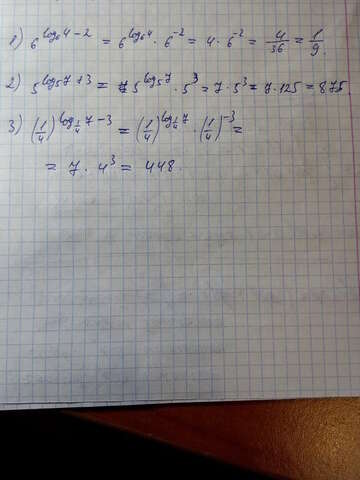 1) 6^{log_6 4 - 2} = 6^{log_6 4} · 6^{-2} = 4 · 6^{-2} = 4/36 = 1/9.
2) 5^{log_5 7 + 3} = 5^{log_5 7} · 5^3 = 7 · 5^3 = 7 · 125 = 875.
3) (1/4)^{log_{1/4} 7 - 3} = (1/4)^{log_{1/4} 7} · (1/4)^{-3} =
= 7 · 4^3 = 448.